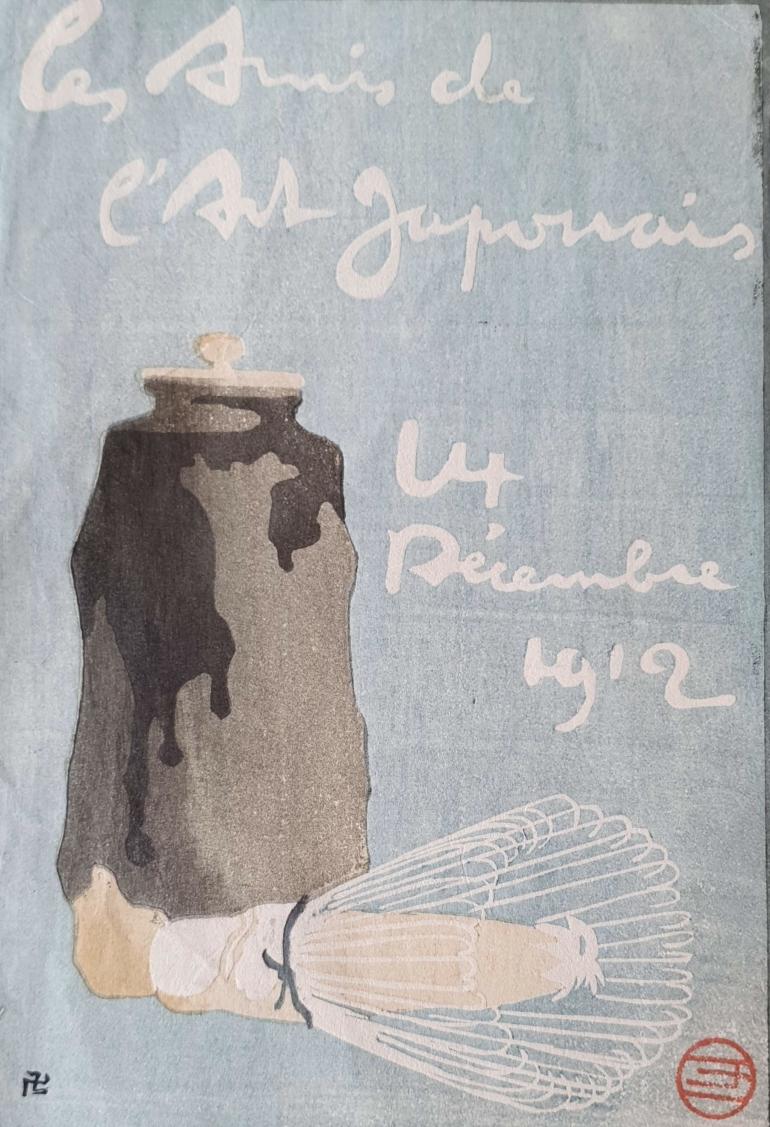 Les Amis de
l'Art Japonais
14
Décembre
1912
卍